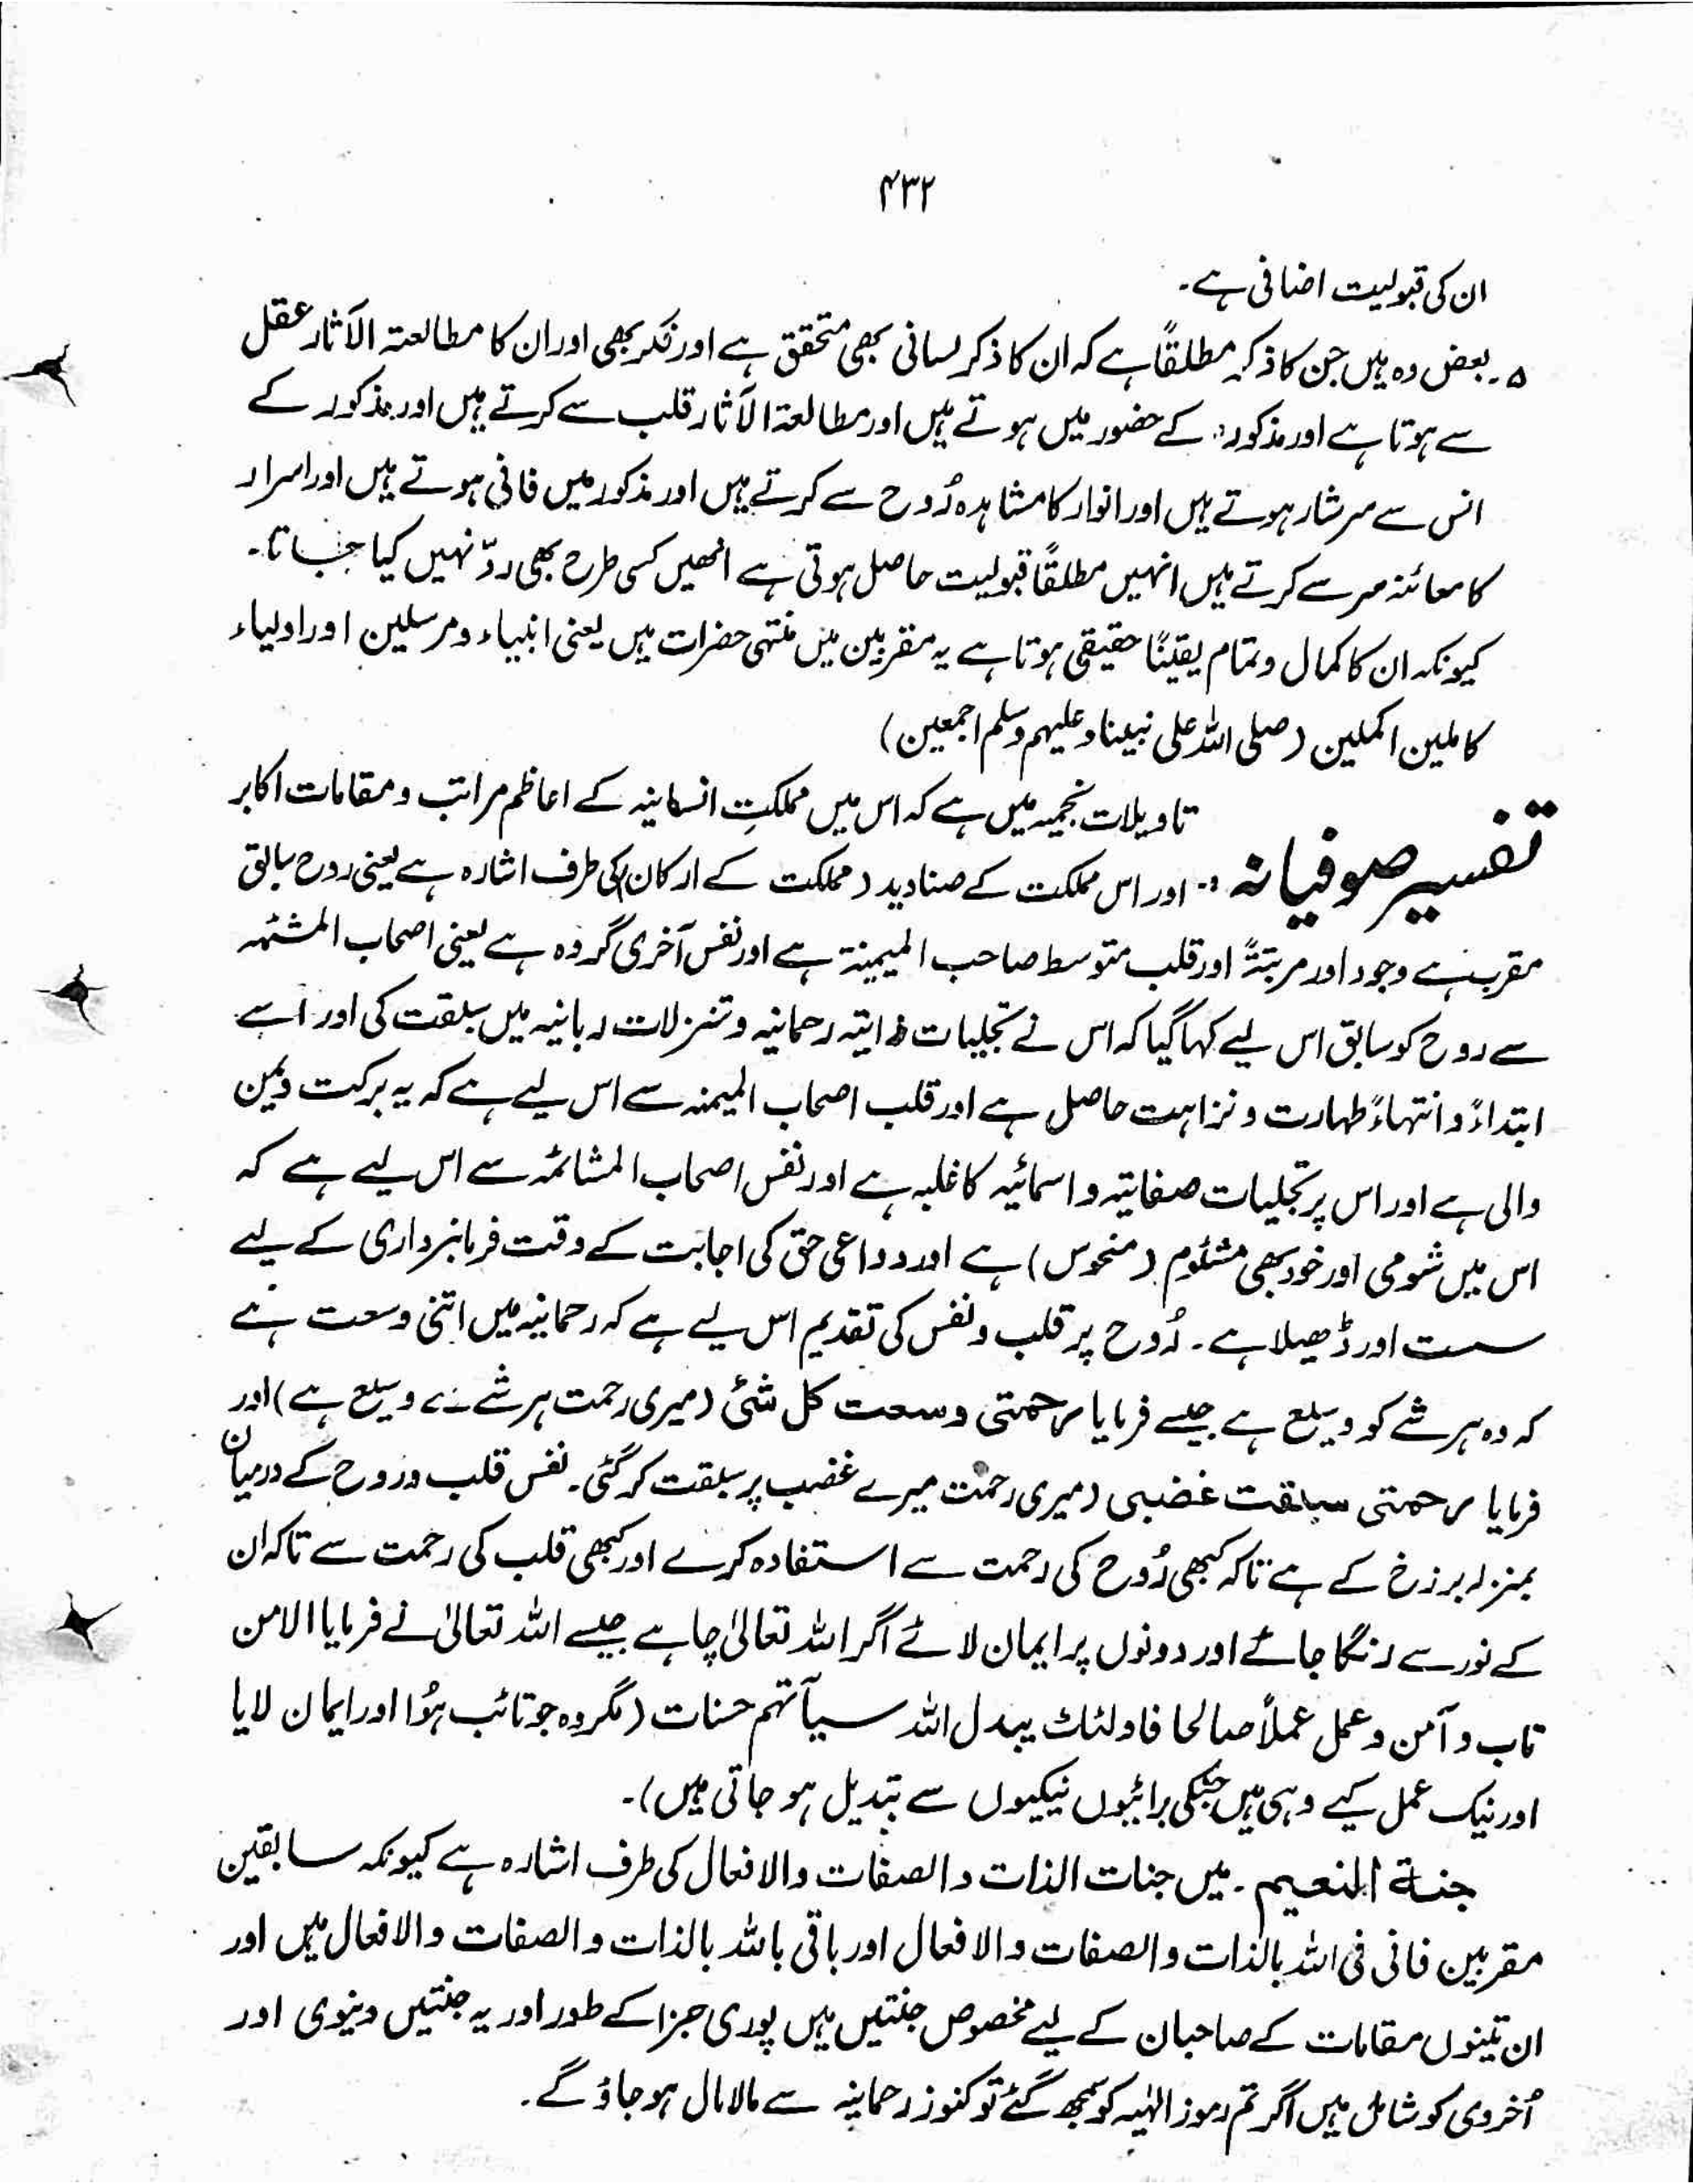 ۴۳۲
ان کی قبولیت اضافی ہے۔
۵۔ بعض وہ ہیں جن کا ذکر مطلقاً ہے کہ ان کا ذکر لسانی بھی متحقق ہے اور فکر بھی اور ان کا مطالعۃ الآثار عقل
سے ہوتا ہے اور مذکور کے حضور میں ہوتے ہیں اور مطالعۃ الآثار قلب سے کرتے ہیں اور مذکور کے
انس سے سرشار ہوتے ہیں اور انوار کا مشاہدہ رُوح سے کرتے ہیں اور مذکور میں فانی ہوتے ہیں اور اسرار
کا معائنہ سر سے کرتے ہیں انہیں مطلقاً قبولیت حاصل ہوتی ہے انھیں کسی طرح بھی ردّ نہیں کیا جاتا۔
کیونکہ ان کا کمال و تمام یقیناً حقیقی ہوتا ہے یہ مقربین میں منتہی حضرات ہیں یعنی انبیاء و مرسلین اور اولیاء
کاملین اکملین (صلی اللہ علی نبینا وعلیہم وسلم اجمعین)
تفسیر صوفیانہ :- تاویلات نجمیہ میں ہے کہ اس میں مملکتِ انسانیہ کے اعاظم مراتب و مقامات اکابر
اور اس مملکت کے صنادید (مملکت کے ارکان) کی طرف اشارہ ہے یعنی روح سابق
مقرب ہے وجود اور مرتبۃً اور قلب متوسط صاحب المیمنۃ ہے اور نفس آخری گروہ ہے یعنی اصحاب المشئمہ
سے روح کو سابق اس لیے کہا گیا کہ اس نے تجلیات ذاتیہ رحمانیہ و تنزلات ربانیہ میں سبقت کی اور اسے
ابتداءً و انتہاءً طہارت و نزاہت حاصل ہے اور قلب اصحاب المیمنہ سے اس لیے ہے کہ یہ برکت و یمن
والی ہے اور اس پر تجلیات صفاتیہ و اسمائیہ کا غلبہ ہے اور نفس اصحاب المشائمہ سے اس لیے ہے کہ
اس میں شومی اور خود بھی مشئوم (منحوس) ہے اور وہ داعی حق کی اجابت کے وقت فرمانبرداری کے لیے
سست اور ڈھیلا ہے۔ رُوح پر قلب و نفس کی تقدیم اس لیے ہے کہ رحمانیہ میں اتنی وسعت ہے
کہ وہ ہر شے کو وسیع ہے جیسے فرمایا رحمتی وسعت کل شئ (میری رحمت ہر شے سے وسیع ہے) اور
فرمایا رحمتی سبقت غضبی (میری رحمت میرے غضب پر سبقت کر گئی۔ نفس قلب و روح کے درمیان
بمنزلہ برزخ کے ہے تاکہ کبھی رُوح کی رحمت سے استفادہ کرے اور کبھی قلب کی رحمت سے تاکہ ان
کے نور سے رنگا جائے اور دونوں پر ایمان لائے اگر اللہ تعالیٰ چاہے جیسے اللہ تعالیٰ نے فرمایا الا من
تاب و آمن و عمل عملاً صالحا فاولئک یبدل اللہ سیآتہم حسنات (مگر وہ جو تائب ہُوا اور ایمان لایا
اور نیک عمل کیے وہی ہیں جنکی برائیوں نیکیوں سے تبدیل ہو جاتی ہیں)۔
جنۃ النعیم۔ میں جنات الذات والصفات والافعال کی طرف اشارہ ہے کیونکہ سابقین
مقربین فانی فی اللہ بالذات والصفات والافعال اور باقی باللہ بالذات والصفات والافعال ہیں اور
ان تینوں مقامات کے صاحبان کے لیے مخصوص جنتیں ہیں پوری جزا کے طور اور یہ جنتیں دنیوی اور
اُخروی کو شامل ہیں اگر تم رموز الٰہیہ کو سمجھ گئے تو کنوز رحمانیہ سے مالا مال ہو جاؤ گے۔